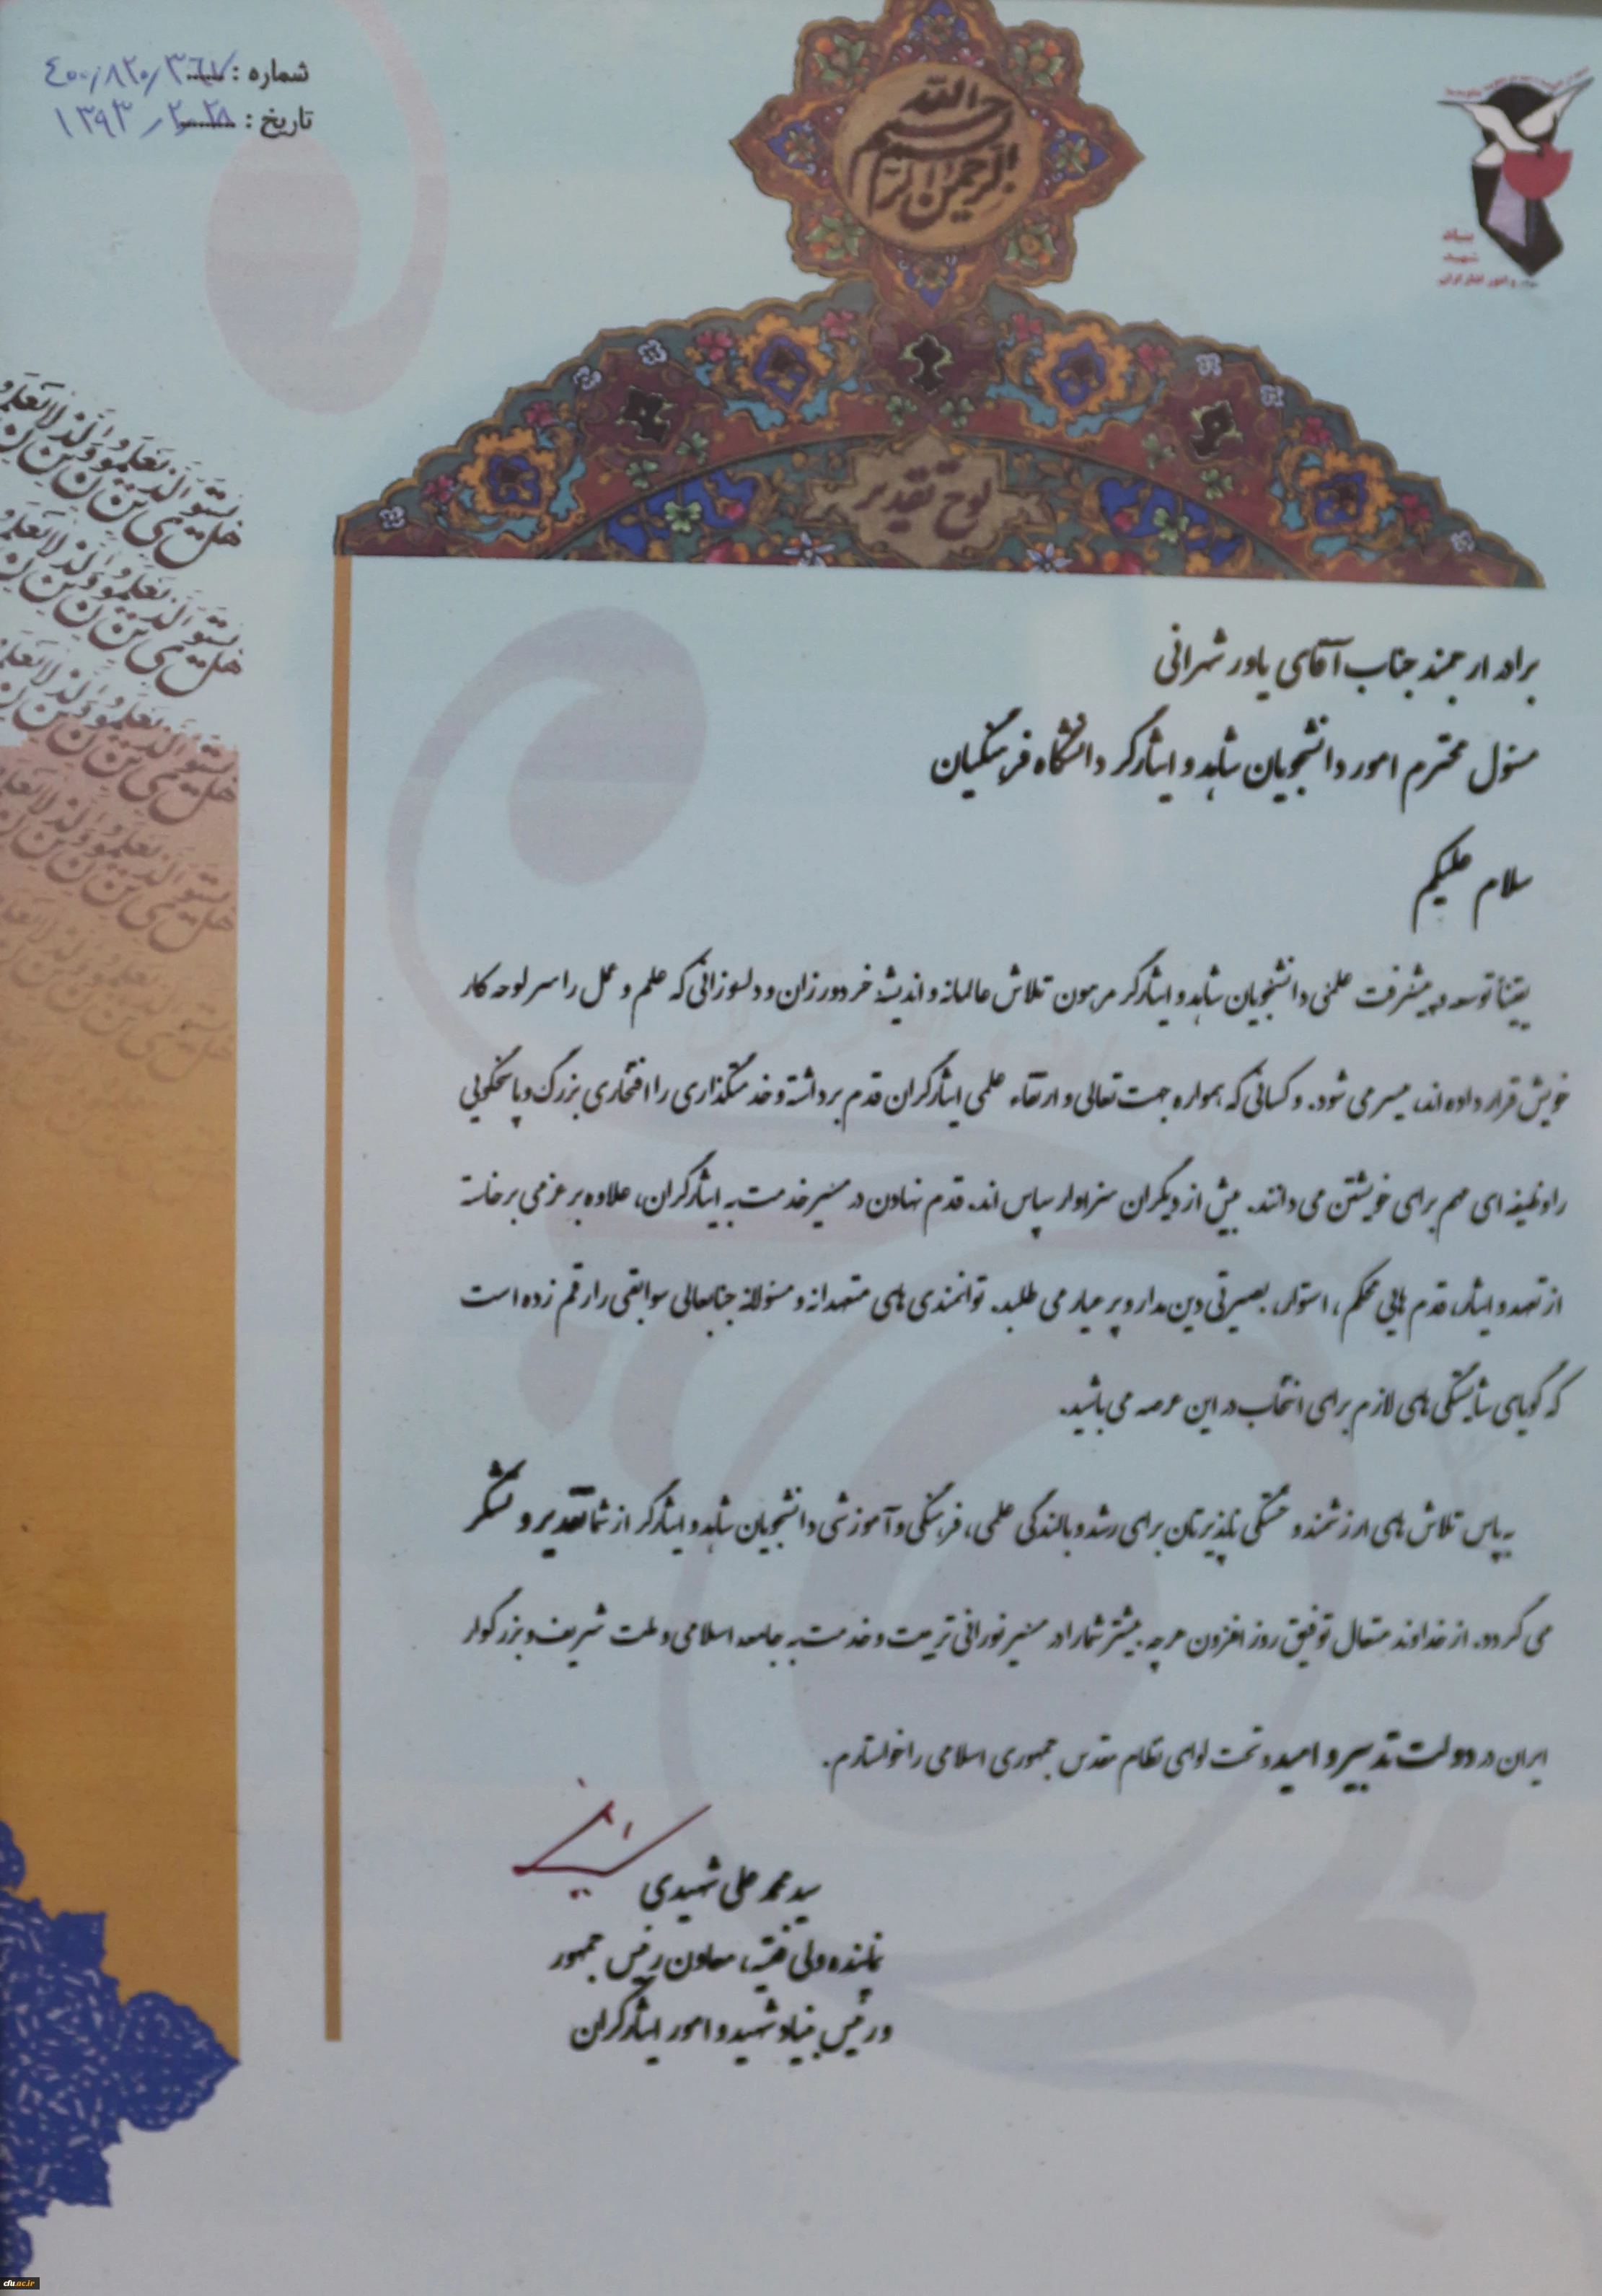 شماره : ٤٠٠/٨٢٠/٣٦٧
تاریخ : ١٣٩٣/٢/٢٨
بسم الله
الرحمن الرحیم
بنیاد
شهید
و امور ایثارگران
لوح تقدیر
هل یستوی الذین یعلمون والذین لا یعلمون
برادر ارجمند جناب آقای یاور شهرانی
مسئول محترم امور دانشجویان شاهد و ایثارگر دانشگاه فرهنگیان
سلام علیکم
یقیناً توسعه و پیشرفت علمی دانشجویان شاهد و ایثارگر مرهون تلاش عالمانه و اندیشهٔ خردورزان و دلسوزانی که علم و عمل را سرلوحه کار
خویش قرار داده اند، میسر می شود. و کسانی که همواره جهت تعالی و ارتقاء علمی ایثارگران قدم برداشته و خدمتگذاری را افتخاری بزرگ و پاسخگویی
را وظیفه ای مهم برای خویشتن می دانند. بیش از دیگران سزاوار سپاس اند. قدم نهادن در مسیر خدمت به ایثارگران، علاوه بر عزمی برخاسته
از تعهد و ایثار، قدم هایی محکم، استوار، بصیرتی دین مدار و پر عیار می طلبد. توانمندی های متعهدانه و مسئولانه جنابعالی سوابقی را رقم زده است
که گویای شایستگی های لازم برای انتخاب در این عرصه می باشید.
به پاس تلاش های ارزشمند و خستگی ناپذیرتان برای رشد و بالندگی علمی، فرهنگی و آموزشی دانشجویان شاهد و ایثارگر از شما تقدیر و تشکر
می گردد. از خداوند متعال توفیق روز افزون هر چه بیشتر شما را در مسیر نورانی تربیت و خدمت به جامعه اسلامی و ملت شریف و بزرگوار
ایران در دولت تدبیر و امید و تحت لوای نظام مقدس جمهوری اسلامی را خواستارم.
سید محمد علی شهیدی
نماینده ولی فقیه، معاون رئیس جمهور
و رئیس بنیاد شهید و امور ایثارگران
cfu.ac.ir